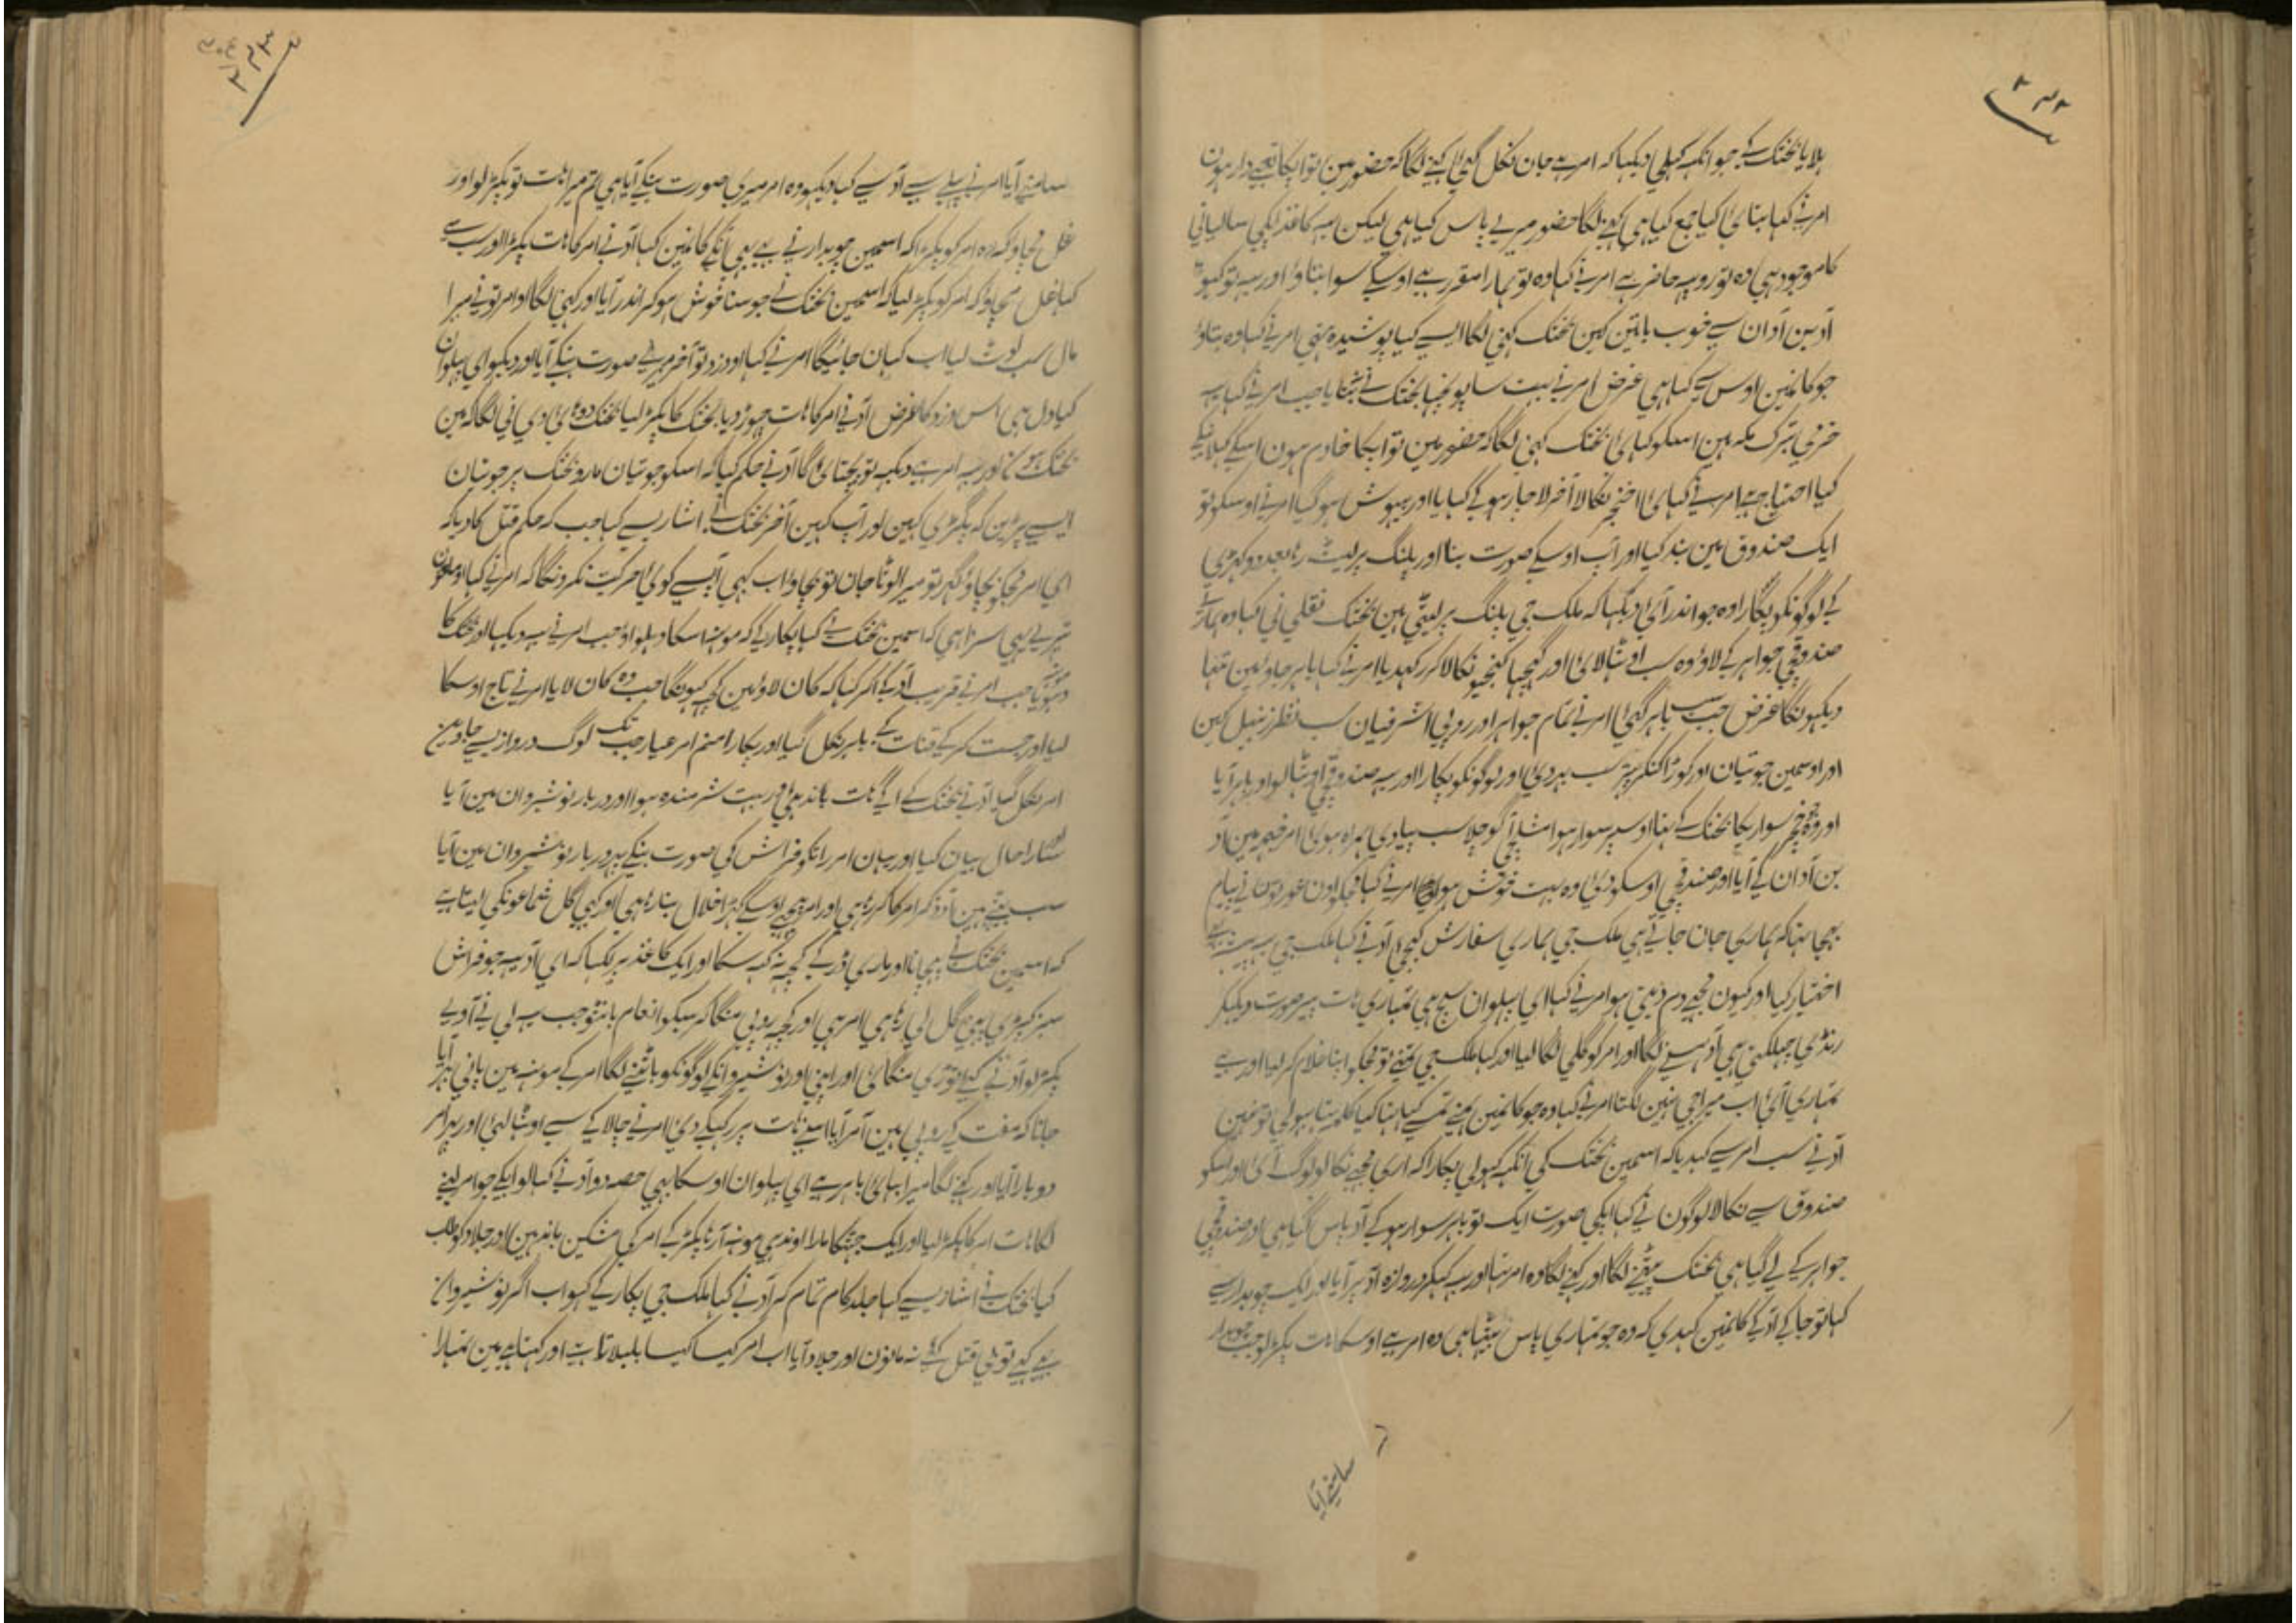 ۲۴۲
بلایا بختک کے جو انکہ کہلی دیکہا کہ امر ہے جان نکل گئی کہنے لگا کہ حضور مین تو اپکا تعبدار ہون
امر نے کہا بتا کیا جمع کیا ہی کہنے لگا حضور میرے پاس کیا ہی لیکن یہ کاغذ لکہی سالیانی
کا موجود ہی وہ تو روپیہ حاضر ہے امر نے کہا وہ تو ہمارا مقرر ہے اوسکے سوا بتاؤ اور یہ تو کہو
آدبن آدان سے خوب باتین کہین بختک کہنی لگا ایسے کیا پوشیدہ تہی امر نے کہا وہ بتاؤ
جو کانمین اوس سے کہا ہی غرض امر نے بہت سا پوچہا بختک نے بتایا جب امر نے کہا یہ
خرمی تبرک مکہ ہین اسکو کہا بختک کہنی لگا کہ حضور مین تو اپکا خادم ہون اسکے کہلانیکے
کیا احتیاج ہے امر نے کہا خنجر نکالا آخر لاچار ہو کے کہایا اور بیہوش ہو گیا امر نے اوسکو تو
ایک صندوق مین بند کیا اور آپ اوسکے صورت بنا اور پلنگ پر لیٹ رہا بعد دو گہڑی
کے لوگونکو پکارا وہ جو اندر آئ دیکہا کہ ملک جی پلنگ پر لیٹی ہین بختک نقلی نی کہا وہ ہمارے
صندوقچی جواہر کے لاؤ وہ سب اوٹہا لائ اور کنجیو نکالا کر رکہدیا امر نے کہا باہر جاؤ مین تنہا
دیکہونگا غرض جب سب باہر گئی امر نے تمام جواہر اور روپی اشرفیان سب نظر زنبیل کین
اور اوسمین جوتیان اور کوڑا کنکر پتہر سب بہر دی اور لوگونکو پکارا اور یہ صندوقچی اوٹہا لو اور باہر آیا
اور وہ خچر سواریکا بختک کے تہا اوسپر سوار ہوا سب پیادی ہمراہ ہوی امر خیمہ مین آد
بن آدان کے آیا اور صندقچی اوسکو دی وہ بہت خوش ہوا امر نے کہا مجکو اون عورتون نے پیام
بہیجا تہا کہ ہماری جان جاتے ہی ملک جی ہماری سفارش کیجی آدنے کہا ملک جی یہ
اختیار کیا اور کیون مجہے دم دیتی ہو امر نے کہا ای پہلوان سچ ہی تمہاری صورت دیکہکر
رنڈی ہی آد ہسنے لگا اور امر کو گلی لگا لیا اور کہا ملک جی تمنے تو مجکو اپنا غلام کر لیا اور بے
تمہاری آی اب میرا جی نہین لگتا امر نے کہا وہ جو کانمین ہمنے تمسے کہا تہا کیا کلمہ تہا بہولی تو نہین
آدنے سب امر سے کہدیا کہ اسمین بختک کی آنکہ کہولی پکارا کہ اری مجہے نکالو لوگ آی اور اسکو
صندوق سے نکالا لوگون نے کہا اپکی صورت ایک تو باہر سوار ہو کے آد پاس گیا ہی اور صندوقچی
جواہر کے لے گیا ہی بختک پیٹنے لگا اور کہنے لگا وہ امر تہا اور یہ کہکر دروازہ آد پر آیا اور ایک چوبدار سے
کہا تو جا کے آد کے کانمین کہدی کہ وہ جو تمہاری پاس بیٹہا ہی وہ امر ہے اوسکا ہات پکڑ لو جب چوبدار
سامنے آیا
۲۴۳
سامنے آیا امر نے پہلے سے آد سے کہا دیکہو وہ امر میری صورت بنکے آیا ہی تم میرا ہات تو پکڑ لو اور
غل مچاؤ کہ وہ امر کو پکڑا کہ اسمین چوبدار نے بہی آنکے کانمین کہا آد نے امر کا ہات پکڑا اور سب سے
کہا غل مچاؤ کہ امر کو پکڑ لیا کہ اسمین بختک نے جو سنا خوش ہو کر اندر آیا اور کہنی لگا او امر تو نے میرا
مال سب لوٹ لیا اب کہان جائیگا امر نے کہا او دزد تو آخر میرے صورت بنکے آیا اور دیکہو ای پہلوان
کیا دل ہی اس دزد کا غرض آدنے امر کا ہات چہوڑ دیا بختک کا پکڑ لیا بختک دوہائی دینی لگا کہ مین
بختک ہون اور یہ امر ہے دیکہہ تو پچتائ گا آدنے حکم کیا کہ اسکو جوتیان مارو بختک پر جوتیان
ایسے پڑین کہ پگڑی کہین اور آپ کہین آخر بختک نے اشاریسے کہا جب کہ حکم قتل کا دیا کہ
ای امر مجکو بچاؤ گہر تو میرا لوٹا جان تو بچاؤ اب کبہی ایسے کوی حرکت نکرونگا کہ امر نے کہا او ملعون
تیرے یہی سزا ہی کہ اسمین بختک نے کہا پکار کے کہ مونہ اسکا دہلواؤ جب امر نے یہ دیکہا اور بختک کا
دہویا جب امر نے قریب آد کے اکر کہا کہ کان لاؤ مین کچہ کہونگا جب وہ کان لایا امر نے تاج اوسکا
لیا اور جست کر کے قنات کے باہر نکل گیا اور پکارا منم امر عیار جب تک لوگ دروازیسے جاوین
امر نکل گیا آدنے بختک کے اگے ہات باندہی اور بہت شرمندہ ہوا اور دربار نوشیروان مین آیا
سارا حال بیان کیا اور یہان امر راتکو فراش کی صورت بنکے پہر دربار نوشیروان مین آیا
سب بیٹہے ہین آد ذکر امر کا کر رہا ہی اور امر پیچہے اوسکے کہڑا خلال بنا رہا ہی اور کبہی گل شماعونکی لیتا ہے
کہ اسمین بختک نے پہچانا اور ماری ڈر کے کچہ نہ کہہ سکا اور ایک کاغذ پر لکہا کہ ای آد یہ جو فراش
سبز کپڑی پہنی گل لی رہا ہی امر ہی اور کچہ روپی منگا کر سبکو انعام بانٹو جب یہ لینی آوے
پکڑ لو آدنے کئی توڑی منگائ اور اپنی اور نوشیروانکے لوگونکو بانٹنے لگا امر کے مونہ مین پانی بہر آیا
جانا کہ مفت کے روپی ہین آمر آیا اسنے ہات پر رکہکے دی امر نے چالاکے سے اوٹہا لئی اور پہر امر
دوبارا آیا اور کہنے لگا میرا بہائ باہر ہے ای پہلوان اوسکا بہی حصہ دو آدنے کہا لو ایکے جو امر لینے
لگا ہات امر کا پکڑ لیا اور ایک جہٹکا مارا اوندی مونہ آ رہا پکڑ کے امر کی مشکین باندہین اور جلاد کو طلب
کیا بختک نے اشاریسے کہا جلد کام تمام کر آدنے کہا ملک جی پکار کے کہو اب اگر نوشیروان
بہی کہے تو مین قتل کئے نہ مانون اور جلاد آیا اب امر کیسا کیسا بلبلاتا ہے اور کہتا ہے مین تمہارا